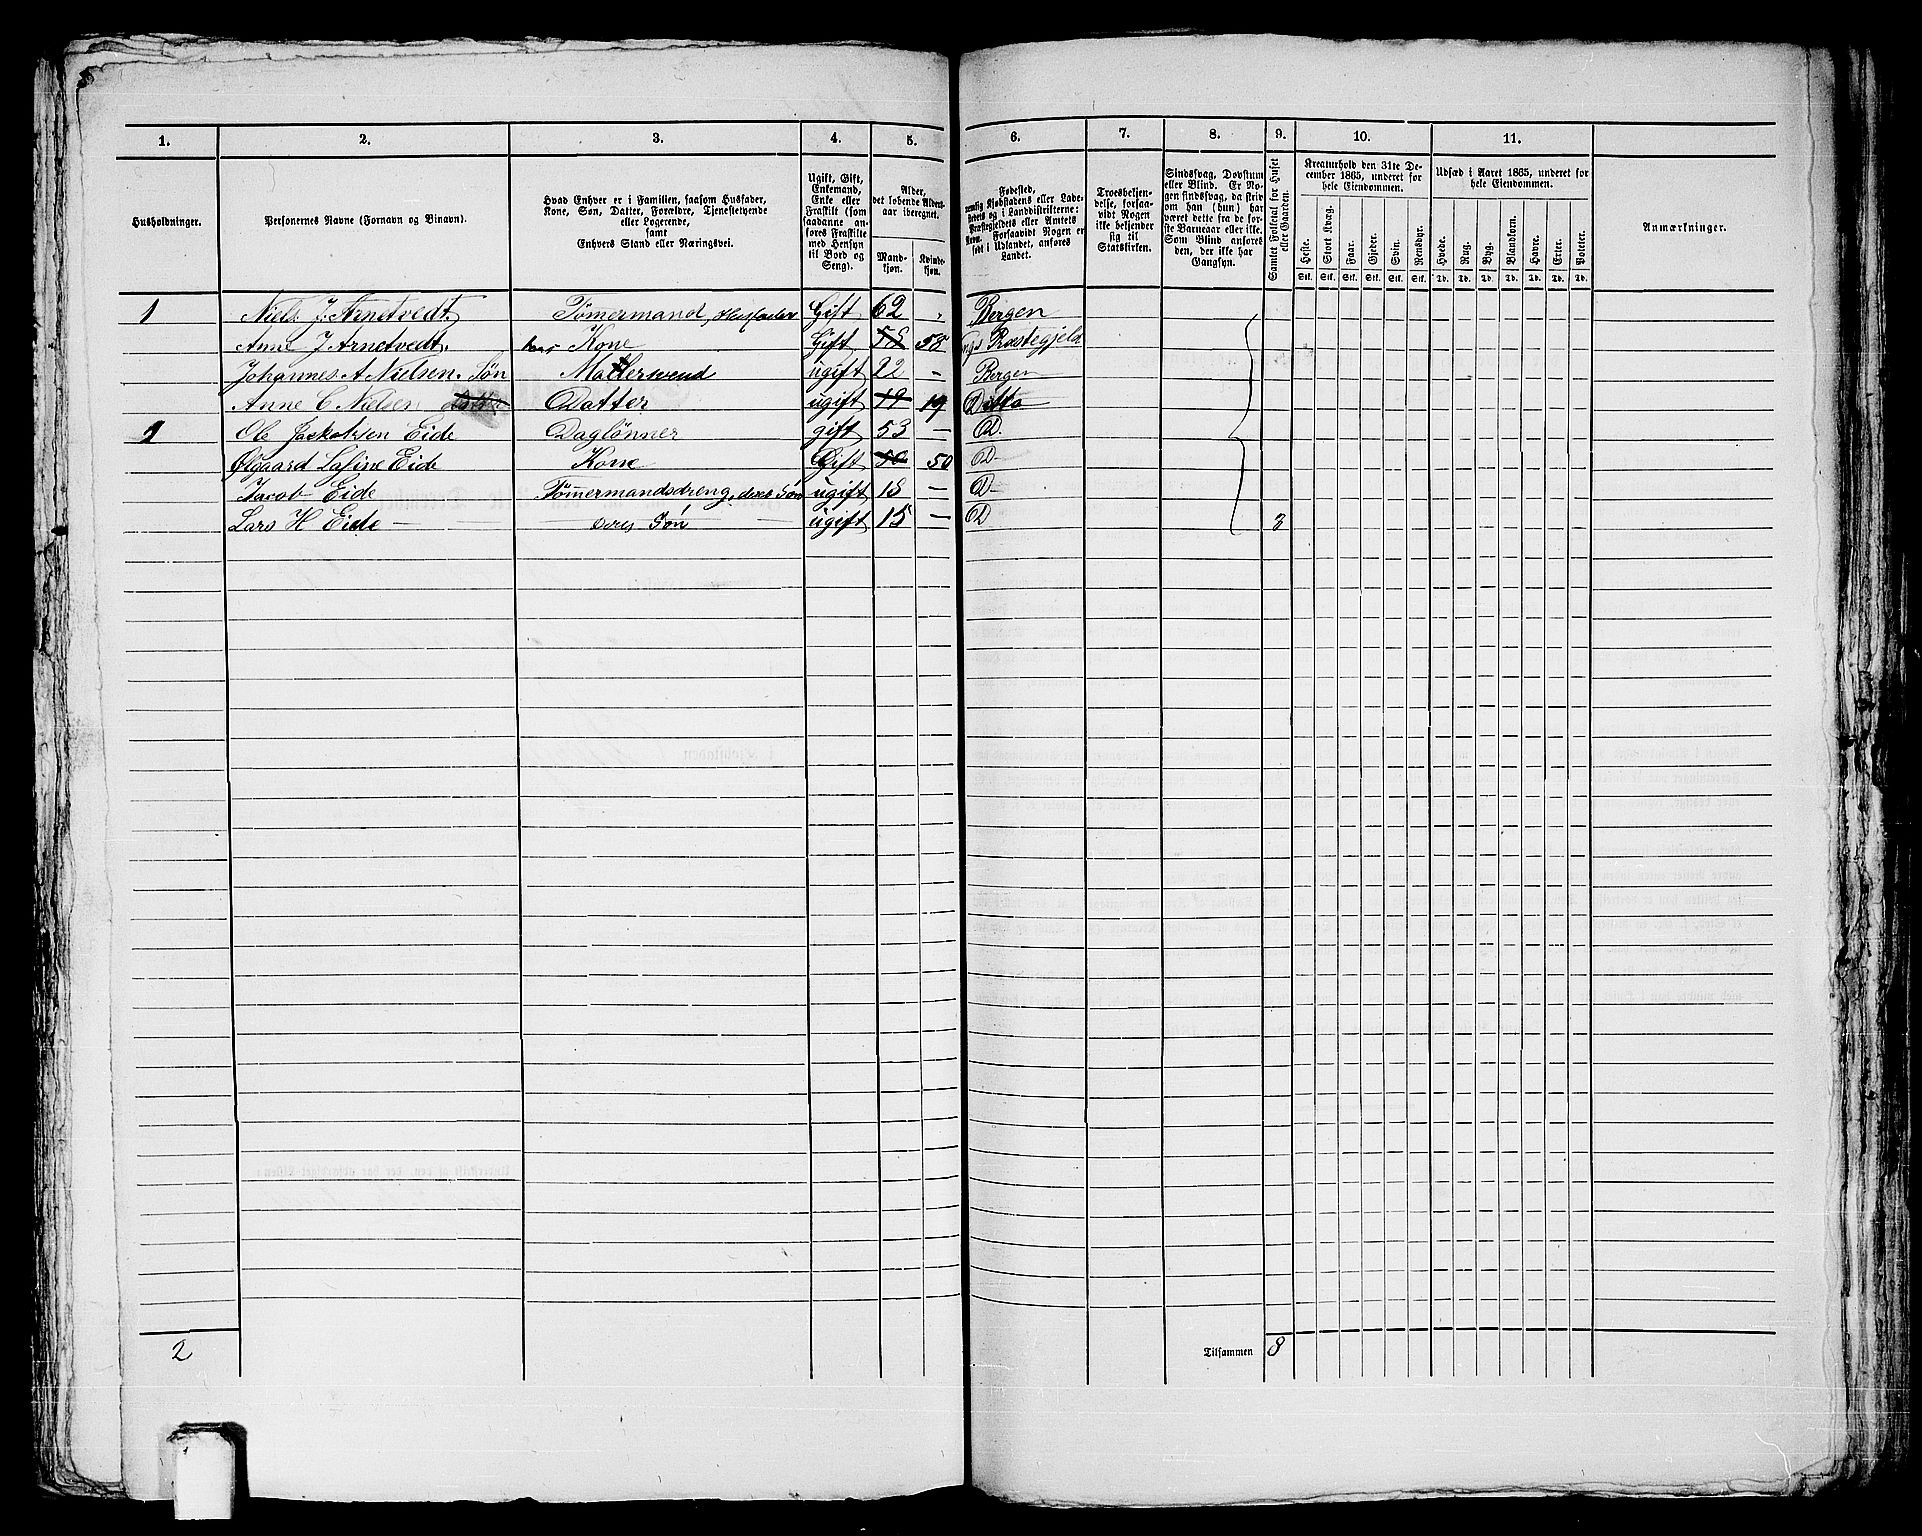 1. 2. 3. 4. 5. 6. 7. 8. 9. 10. 11.
Husholdninger.
Personernes Navne (Fornavn og Binavn).
Hvad Enhver er i Familien, saasom Husfader,
Kone, Søn, Datter, Forældre, Tjenestetyende
eller Logerende,
samt
Enhvers Stand eller Næringsvei.
Ugift, Gift,
Enkemand,
Enke eller
Fraskilt (som
saadanne an-
føres Fraskilte
med Hensyn
til Bord og
Seng).
Alder,
det løbende Alders-
aar iberegnet.
Mand-
kjøn.
Kvinde-
kjøn.
Fødested,
nemlig Kjøbstadens eller Lade-
stedets og i Landdistrikterne:
Præstegjeldets eller Amtets
Navn. Forsaavidt Nogen er
født i Udlandet, anføres
Landet.
Troesbekjen-
delse, forsaa-
vidt Nogen
ikke bekjender
sig til
Statskirken.
Sindssvag, Døvstum
eller Blind. Er No-
gen sindssvag, da skriv
om han (hun) har
været dette fra de før-
ste Barneaar eller ikke.
Som Blind anføres
den, der ikke har
Gangsyn.
Samlet Folketal for Huset
eller Gaarden.
Kreaturhold den 31te De-
cember 1865, underet for
hele Eiendommen.
Heste. Stort Kvæg. Faar. Gjeder. Svin. Rensdyr.
Stk. Stk. Stk. Stk. Stk. Stk.
Udsæd i Aaret 1865, underet for
hele Eiendommen.
Hvede. Rug. Byg. Blandkorn. Havre. Erter. Poteter.
Td. Td. Td. Td. Td. Td. Td.
Anmærkninger.
1 Niels J. Arnetvedt. Tømermand, Husfader Gift 62 Bergen
Anne J Arnetvedt. hans Kone Gift 58 58 Præstegjeld
Johannes A Nielsen. Søn Mattersvend ugift 22 – Bergen
Anne C Nielsen Datter Datter ugift 19 19 Ditto
1 Ole Eide Daglønner gift 53 – D.
Ølgaard Lasine Eide Kone Gift 50 50 D–
Jacob Eide Tømermandsdreng, deres Søn ugift 18 – D–
Lars H Eide – deres Søn ugift 15 – D 8
2 Tilsammen 8